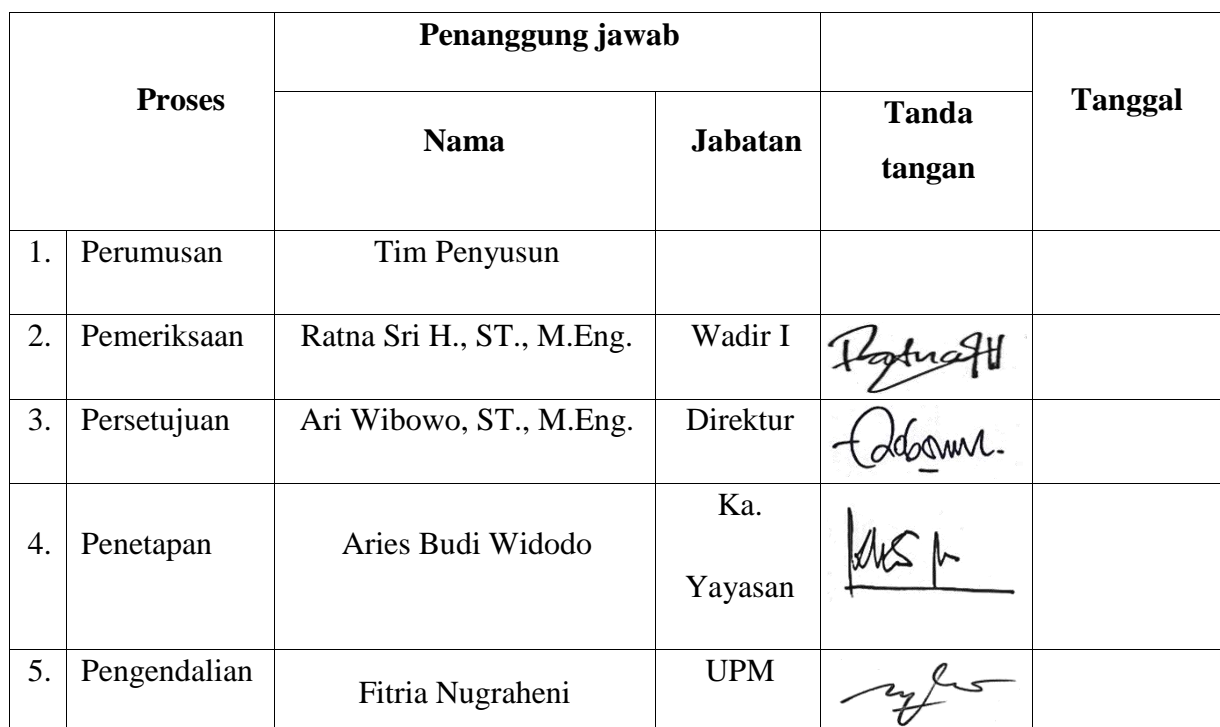 Penanggung jawab
Proses
Tanggal
Nama
Jabatan
Tanda
tangan
1. Perumusan Tim Penyusun
2. Pemeriksaan Ratna Sri H., ST., M.Eng. Wadir I
3. Persetujuan Ari Wibowo, ST., M.Eng. Direktur
Ka.
4. Penetapan Aries Budi Widodo
Yayasan
5. Pengendalian Fitria Nugraheni UPM